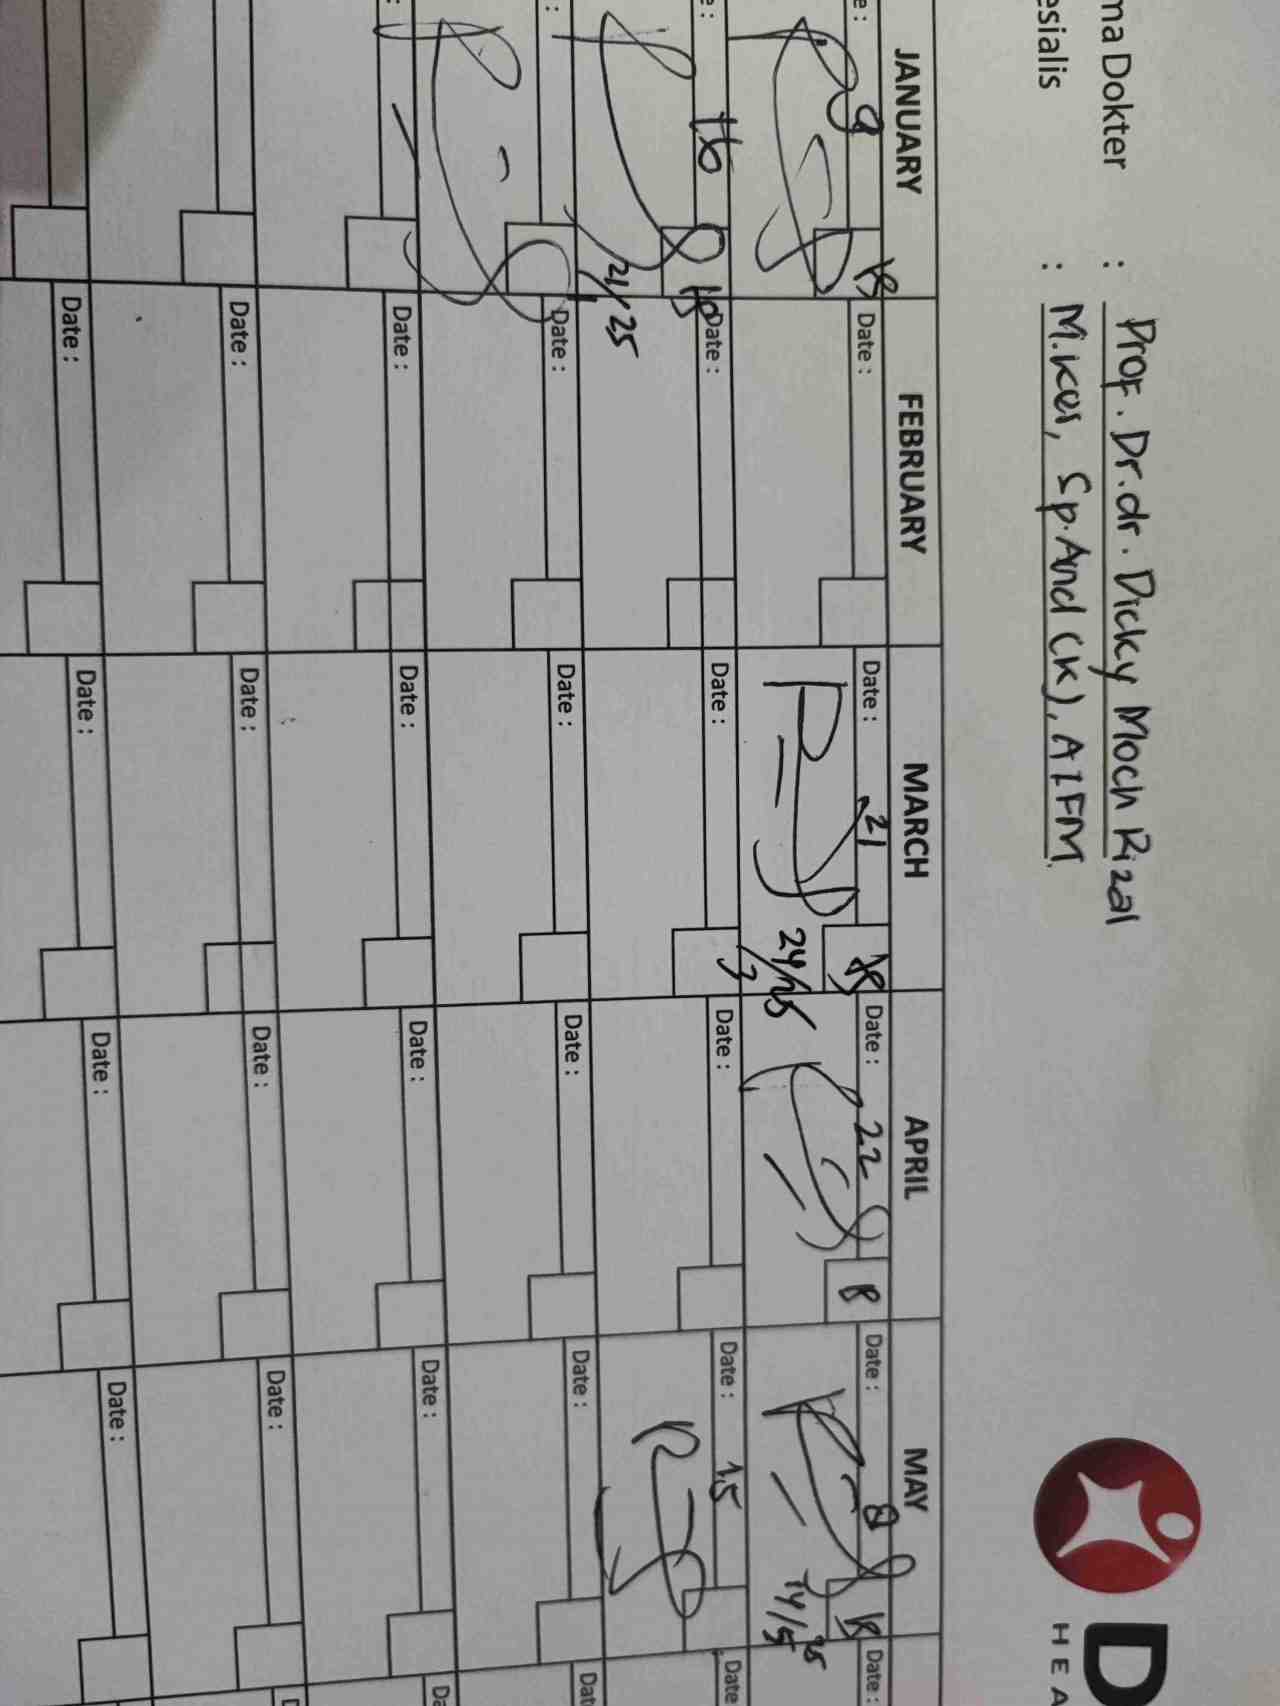 ma Dokter : Prof. Dr. dr. Dicky Moch Rizal
esialis : M.Kes, Sp.And (K), AIFM
D
HEA
JANUARY FEBRUARY MARCH APRIL MAY
e: 9 Date: Date: 21 Date: 22 Date: 8 Date:
24/25 14/5 25
3
e: 16 Date: Date: Date: Date: 15 Date
21/25
1
: Date: Date: Date: Date: Dat
: Date: Date: Date: Date: Da
Date: Date: Date: Date: D
Date: Date: Date: Date: